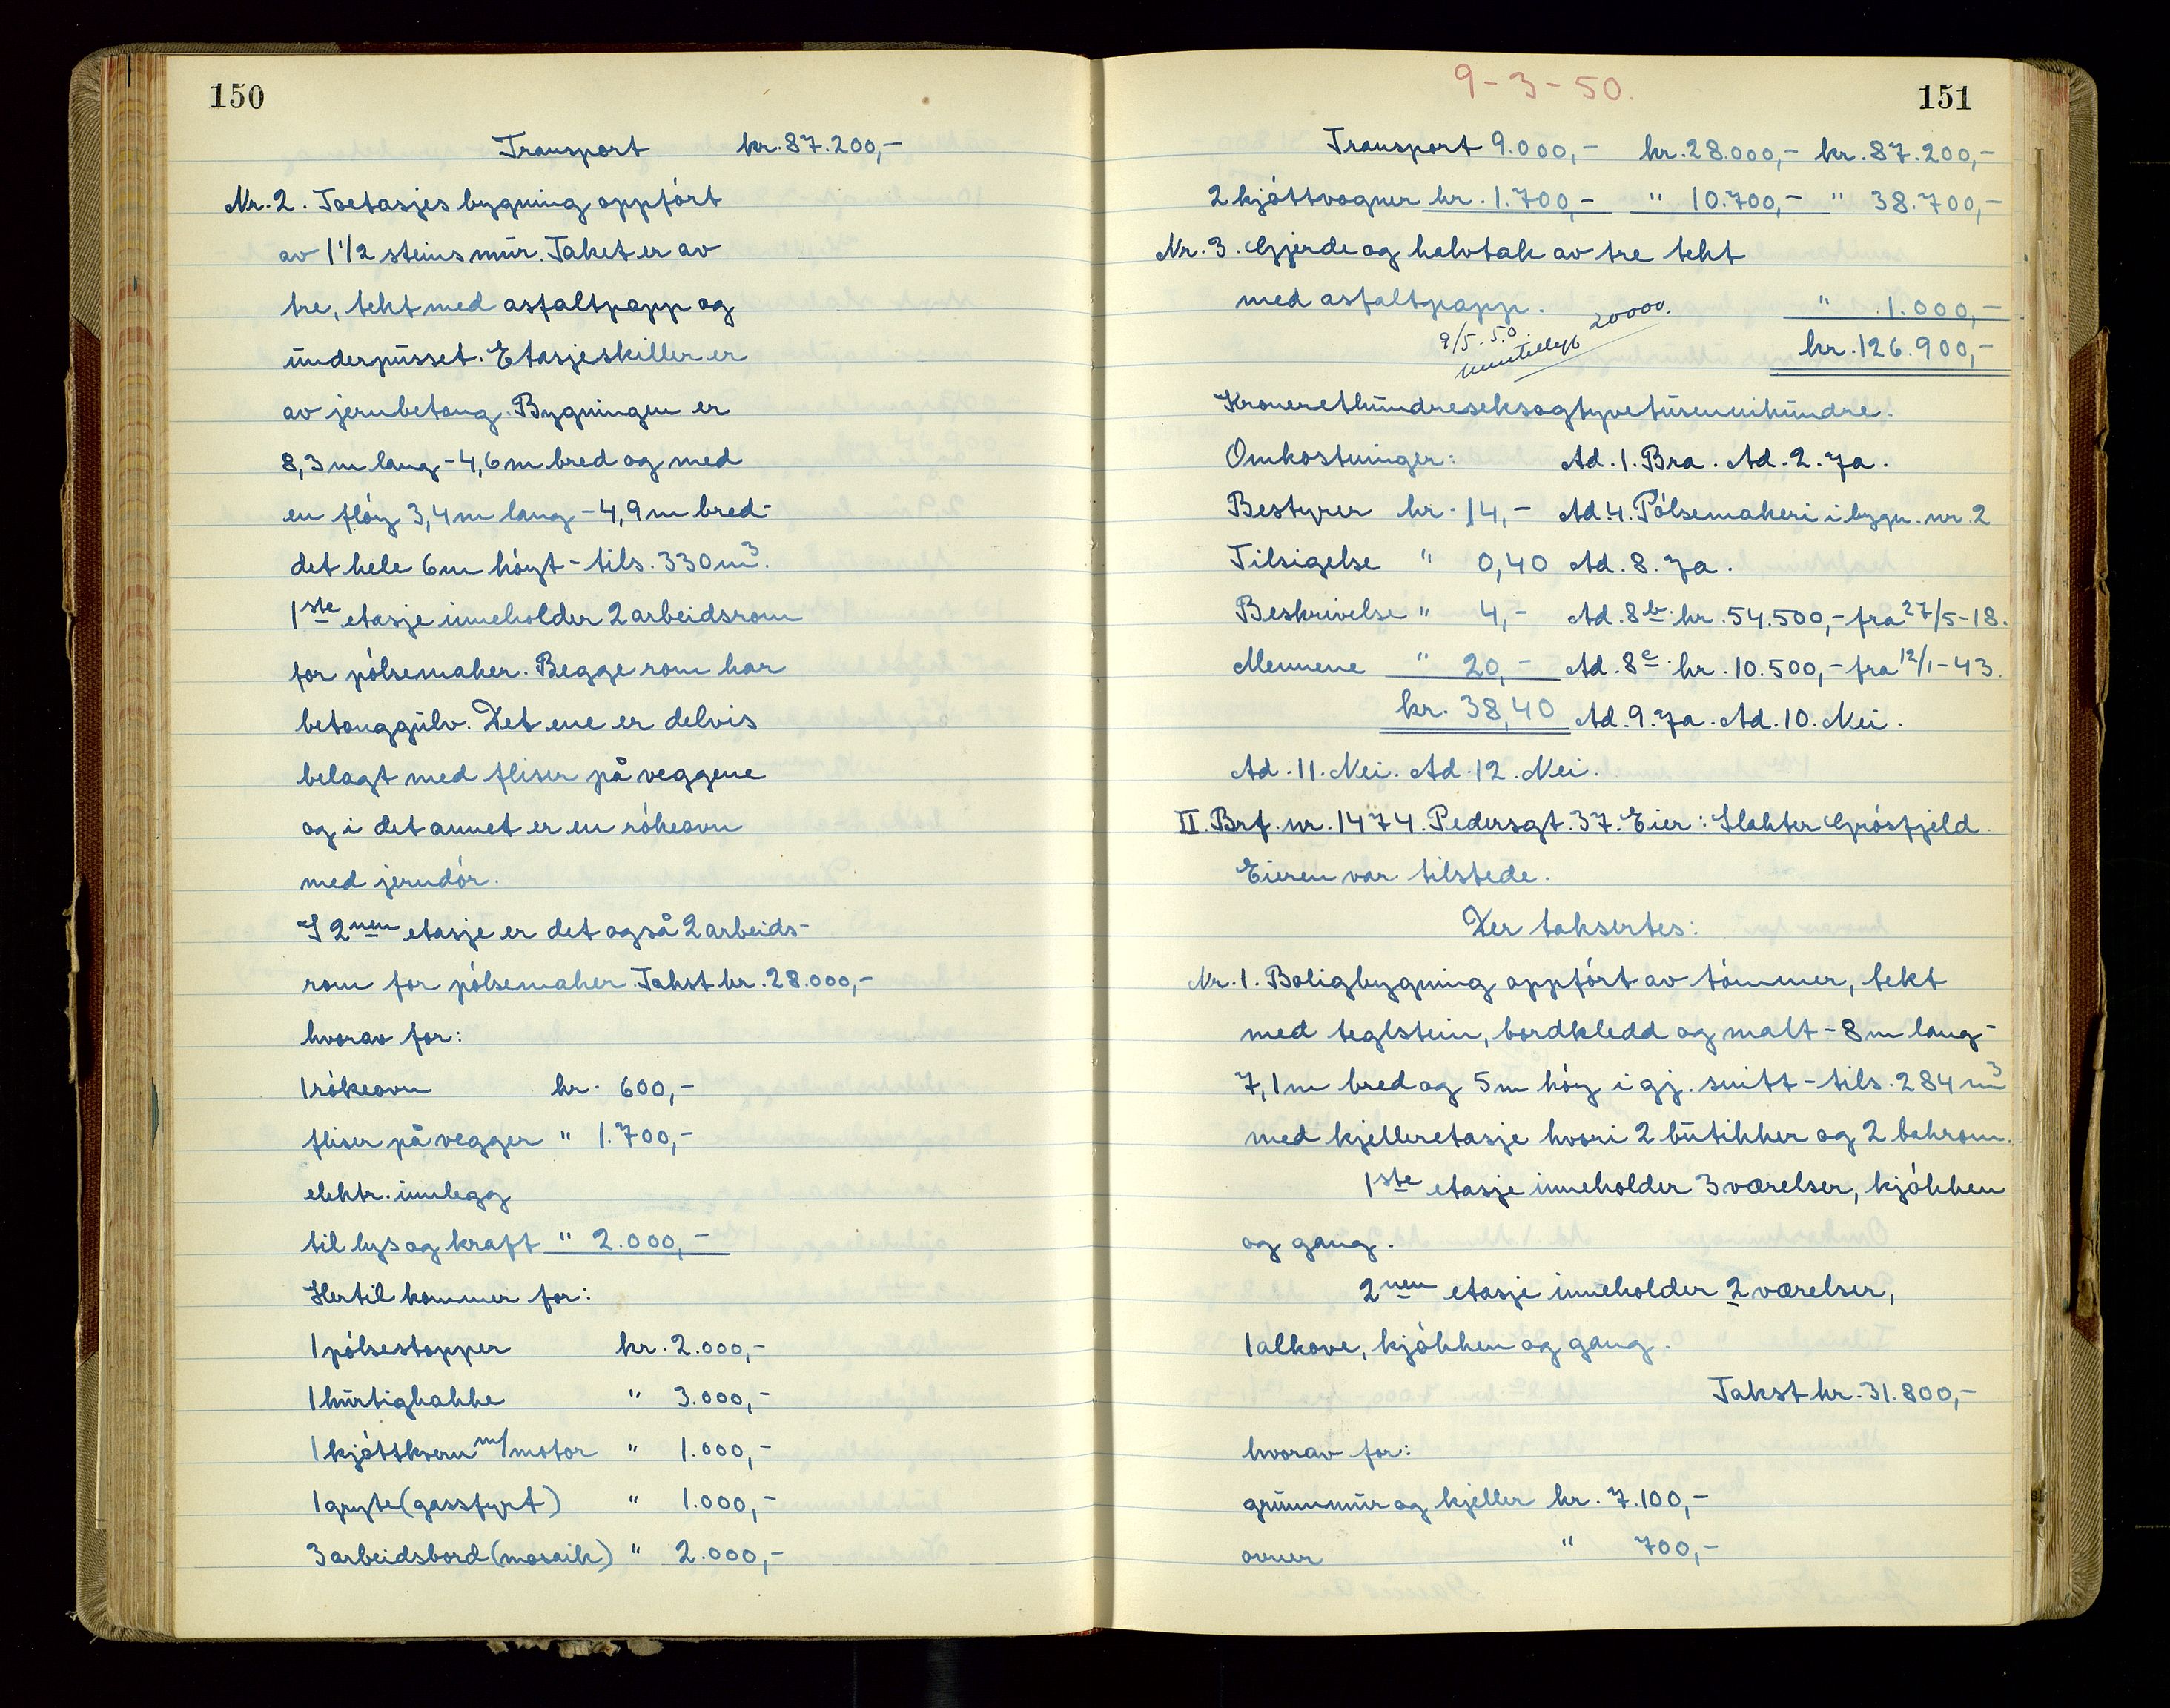 150
Transport kr. 87.200,-
Nr. 2. Toetasjes bygning oppført
av 1 1/2 steins mur. Taket er av
tre, tekt med asfaltpapp og
underpusset. Etasjeskiller er
av jernbetong. Bygningen er
8,3 m lang - 4,6 m bred og med
en fløy 3,4 m lang - 4,9 m bred -
det hele 6 m høyt - tils. 330 m³.
1ste etasje inneholder 2 arbeidsrom
for pølsemaker. Begge rom har
betonggulv. Det ene er delvis
belagt med fliser på veggene
og i det annet er en røkeovn
med jerndør.
I 2nen etasje er det også 2 arbeids-
rom for pølsemaker. Takst kr. 28.000,-
hvorav for:
1 røkeovn kr. 600,-
fliser på vegger " 1.700,-
elektr. innlegg
til lys og kraft " 2.000,-
Hertil kommer for:
1 pølsestopper kr. 2.000,-
1 hurtighakke " 3.000,-
1 kjøttkvern m/motor " 1.000,-
1 gryte (gassfyrt) " 1.000,-
3 arbeidsbord (mosaik) " 2.000,-
9-3-50.
151
Transport 9.000,- kr. 28.000,- kr. 87.200,-
2 kjøttvogner kr. 1.700,- " 10.700,- " 38.700,-
Nr. 3. Gjerde og halvtak av tre tekt
med asfaltpapp. " 1.000,-
9/5-50 20000.
kr. 126.900,-
Kroneretthundreseksogtyvetusennihundre.
Omkostninger: Ad. 1. Bra. Ad. 2. Ja.
Bestyrer kr. 14,- Ad. 4. Pølsemakeri i bygn. nr. 2
Tilsigelse " 0,40 Ad. 8. Ja.
Beskrivelse " 4,- Ad. 8b. kr. 54.500,- fra 27/5-18.
Mennene " 20,- Ad. 8c. kr. 10.500,- fra 12/1-43.
kr. 38,40 Ad. 9. Ja. Ad. 10. Nei.
Ad. 11. Nei. Ad. 12. Nei.
II. Brf. nr. 1474. Pedersgt. 37. Eier: Slakter Grøsfjeld.
Eieren var tilstede.
Der taksertes:
Nr. 1. Boligbygning oppført av tømmer, tekt
med teglstein, bordkledd og malt - 8 m lang -
7,1 m bred og 5 m høy i gj. snitt - tils. 284 m³
med kjelleretasje hvori 2 butikker og 2 bakrom.
1ste etasje inneholder 3 værelser, kjøkken
og gang.
2nen etasje inneholder 2 værelser,
1 alkove, kjøkken og gang.
Takst kr. 31.800,-
hvorav for:
grunnmur og kjeller kr. 7.100,-
ovner " 700,-